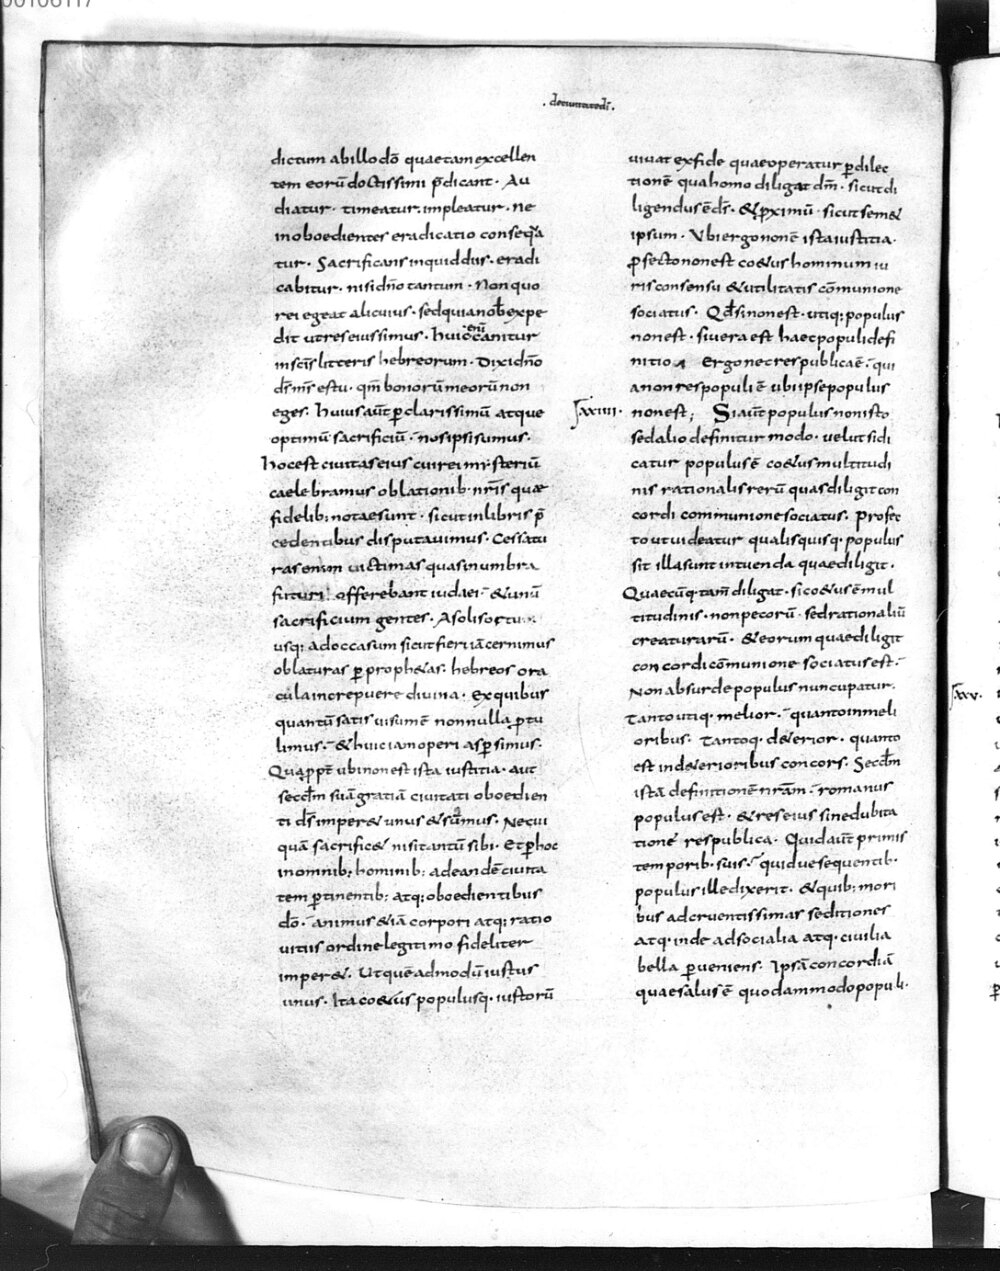 00106117
. deciuitatedi .
dictum abillodō quaetamexcellen
tem eorū doctissimi p̄dicant · Au
diatur · timeatur · impleatur · ne
inoboedienter eradicatio conseqꝰa
tur · Sacrificans inquid diis · eradi
cabitur · nisi dn̄o tantum · Non quo
rei egeat alicuius · sed quia nob̄ expe
dit ut res eius simus · huic enī canitur
in sc̄is litteris hebreorum · Dixi dn̄o
ds̄ ms̄ es tu · qm̄ bonorū meorū non
eges · huius aūt p̱clarissimū atque
optimū sacrificiū · nos ipsi sumus ·
hoc est ciuitas eius cui rei mysteriū
caelebramus oblationib · nr̄is quae
fidelib; notae sunt · sicut in libris p̄
cedentibus disputauimus · Cessatu
ras enim uictimas quas in umbra
futuri offerebant iudaei · & unū
sacrificium gentes · A solis ortu
usq; ad occasum sicut fieri iā cernimus
oblaturas p̱ proph&as · hebreos ora
cula increpuere diuina · Ex quibus
quantū satis uisum ē nonnulla p̱tu
limus · & huic iam operi asp̱simus ·
Quapp̱t ubi non est ista iustitia · aut
secd̄m suā gratiā ciuitati oboedien
ti ds̄ imper& unus & sūmus · Ne cui
quā sacrific& nisi tantū sibi · Et p̱ hoc
in omnib; hominib; ad eandē ciuita
tem p̱tinentib; atq; oboedientibus
dō · animus &iā corpori atq; ratio
uitiis ordine legitimo fideliter
imper& · Ut quēadmodū iustus
unus · Ita co&us populusq · iustorū
uiuat ex fide quae operatur p̱ dilec
tionē qua homo diligat dm̄ · sicut di
ligendus ē ds̄ · & p̱ximū · sicut sem&
ipsum · Ubi ergo non ē ista iustitia ·
p̱fecto non est co&us hominum iu
ris consensu & utilitatis cōmunione
sociatus · Qd̄ si non est · utiq; populus
non est · si uera est haec populi defi
nitio · Ergo nec res publica ē · qui
a non res populi ē ubi ipse populus
xxiiii · non est ; Si aūt populus non isto
sed alio definitur modo · uelut si di
catur populus ē co&us multitudi
nis rationalis rerū quas diligit con
cordi communione sociatus · Profec
to ut uideatur qualis quisq · populus
sit illa sunt intuenda quae diligit ·
Quaecūq · tam̄ diligat · si co&us ē mul
titudinis · non pecorū · sed rationaliū
creaturarū · & eorum quae diligit
concordi cōmunione sociatus est ·
Non absurde populus nuncupatur ·
Tanto utiq · melior · quanto in meli
oribus · Tantoq · d&erior · quanto
est in d&erioribus concors · Secd̄m
istā definitionē nr̄am · romanus
populus est · & res eius sine dubita
tione respublica · Quid aūt primis
temporib · suis · quidue sequentib ·
populus ille dixerit · & quib; mori
bus ad cruentissimas seditiones
atq · inde ad socialia atq · ciuilia
bella p̱ueniens · Ipsā concordiā
quae salus ē quodammodo populi ·
xxv ·